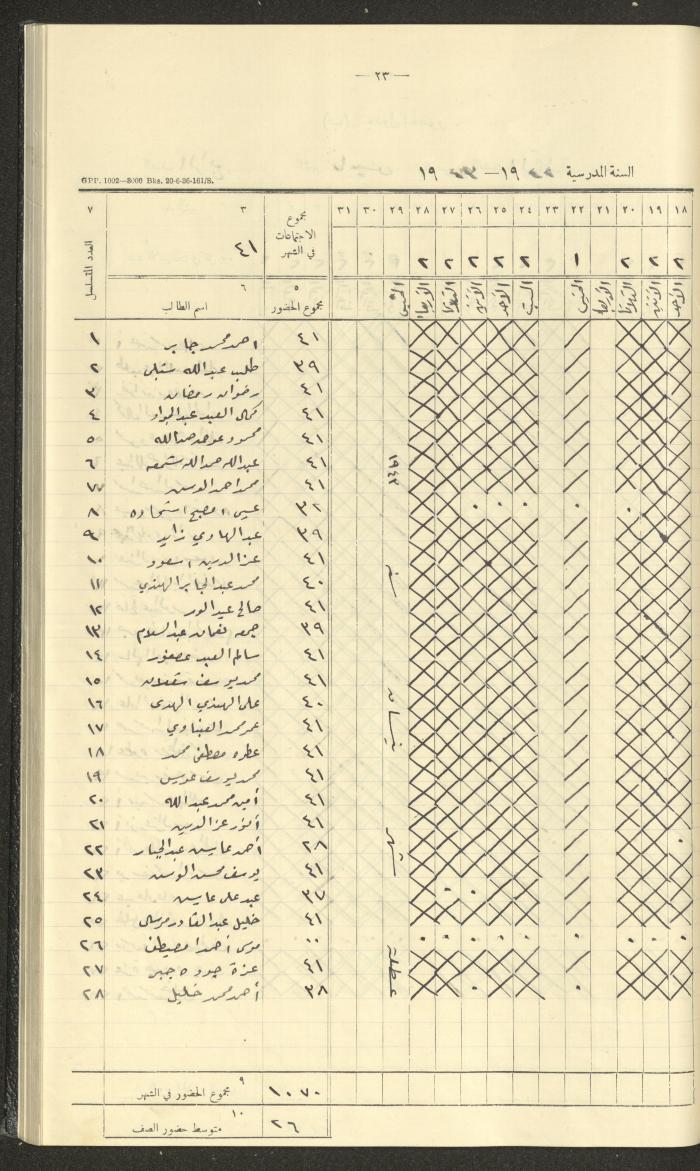 — ٢٣ —
السنة المدرسية ١٩٤٢ — ١٩٤٣
GPP. 1002—3000 Bks. 20-6-36-161/S.
١٨ ١٩ ٢٠ ٢١ ٢٢ ٢٣ ٢٤ ٢٥ ٢٦ ٢٧ ٢٨ ٢٩ ٣٠ ٣١ مجموع الاجتماعات في الشهر ٣ ٧
٢ ٢ ٢ ١ ٢ ٢ ٢ ٢ ٢ ٤١
الأحد الاثنين الثلاثا الأربعا الخميس السبت الأحد الاثنين الثلاثا الأربعا الخميس ٥ مجموع الحضور ٦ اسم الطالب العدد المتسلسل
٤١ احمد محمد جابر ١
٣٩ طلب عبدالله ٢
٤١ رضوان رمضان ٣
٤١ كمال العبد عبدالجواد ٤
٤١ محمود عوض عبدالله ٥
٤١ عبدالله حمدالله ٦
٤١ محمد احمد ٧
٣٢ عيسى ٨
٣٩ عبدالهادي زايد ٩
٤١ عزالدين اسعود ١٠
٤٠ محمد عبدالجابر الهندي ١١
٤١ صالح عيد ١٢
٣٩ جمعه نعمان عبدالسلام ١٣
٤١ سالم العبد عصفور ١٤
٤١ محمد يوسف ١٥
٤٠ على الهندي ١٦
٤١ عمر محمد ١٧
٤١ عطوه مصطفى محمد ١٨
٤١ محمد يوسف ١٩
٤١ أمين محمد عبدالله ٢٠
٤١ أنور عزالدين ٢١
٢٨ أحمد عايش عبدالجبار ٢٢
٤١ يوسف محسن ٢٣
٣٧ عبد على عايش ٢٤
٤١ خليل عبدالقادر موسى ٢٥
٠٠ موسى أحمد مصطفى ٢٦
٤١ عزة جوده جبر ٢٧
٣٨ أحمد محمد خليل ٢٨
عطلة شهر نيسان سنة ١٩٤٣
١٠٧٠ مجموع الحضور في الشهر ٩
٢٦ متوسط حضور الصف ١٠